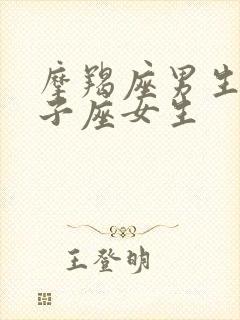 摩羯座男生
子座女生
王登明